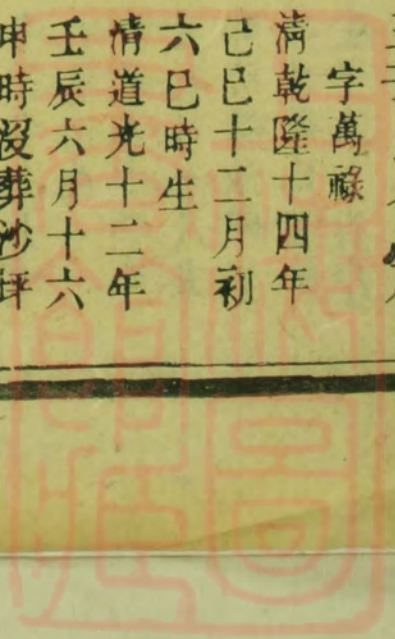 字萬祿
清乾隆十四年
己巳十二月初
六巳時生
清道光十二年
壬辰六月十六
申時沒葬沙坪